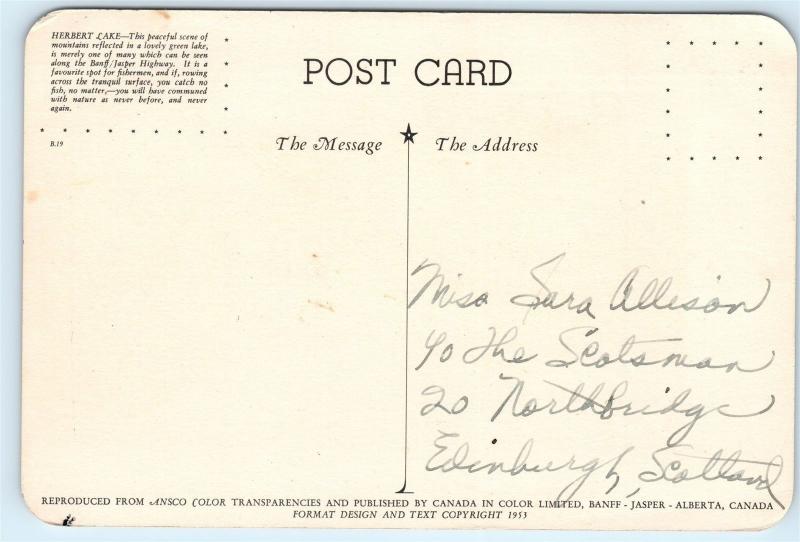 HERBERT LAKE—This peaceful scene of
mountains reflected in a lovely green lake,
is merely one of many which can be seen
along the Banff/Jasper Highway. It is a
favourite spot for fishermen, and if, rowing
across the tranquil surface, you catch no
fish, no matter,—you will have communed
with nature as never before, and never
again.
B.19
POST CARD
The Message
The Address
Miss Sara Allison
c/o The Scotsman
20 Northbridge
Edinburgh, Scotland
REPRODUCED FROM ANSCO COLOR TRANSPARENCIES AND PUBLISHED BY CANADA IN COLOR LIMITED, BANFF - JASPER - ALBERTA, CANADA
FORMAT DESIGN AND TEXT COPYRIGHT 1953